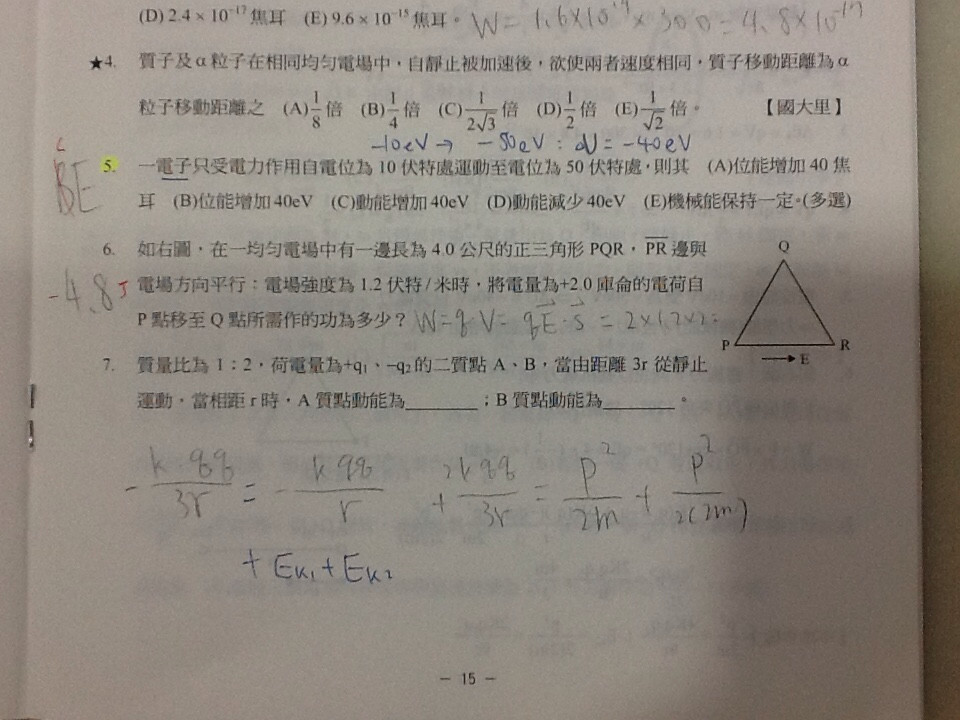 (D) 2.4 × 10⁻¹⁷ 焦耳 (E) 9.6 × 10⁻¹⁵ 焦耳。 W = 1.6×10⁻¹⁹ × 300 = 4.8×10⁻¹⁷
★4. 質子及α粒子在相同均勻電場中，自靜止被加速後，欲使兩者速度相同，質子移動距離為α
粒子移動距離之 (A) 1/8 倍 (B) 1/4 倍 (C) 1/(2√3) 倍 (D) 1/2 倍 (E) 1/√2 倍。 【國大里】
-10eV → -50eV : ΔU = -40eV
C
BE
5. 一電子只受電力作用自電位為 10 伏特處運動至電位為 50 伏特處，則其 (A)位能增加 40 焦
耳 (B)位能增加 40eV (C)動能增加 40eV (D)動能減少 40eV (E)機械能保持一定。(多選)
6. 如右圖，在一均勻電場中有一邊長為 4.0 公尺的正三角形 PQR，PR 邊與
-4.8J 電場方向平行：電場強度為 1.2 伏特/米時，將電量為+2.0 庫侖的電荷自
P 點移至 Q 點所需作的功為多少？ W = q·V = qE·S = 2×1.2×2 =
Q
P R
→ E
7. 質量比為 1：2，荷電量為+q₁、−q₂的二質點 A、B，當由距離 3r 從靜止
運動，當相距 r 時，A 質點動能為________；B 質點動能為________。
- kqq/3r = - kqq/r + 2kqq/3r = p²/2m + p²/2(2m)
+ Eκ₁ + Eκ₂
- 15 -